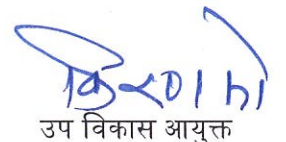 उप विकास आयुक्त